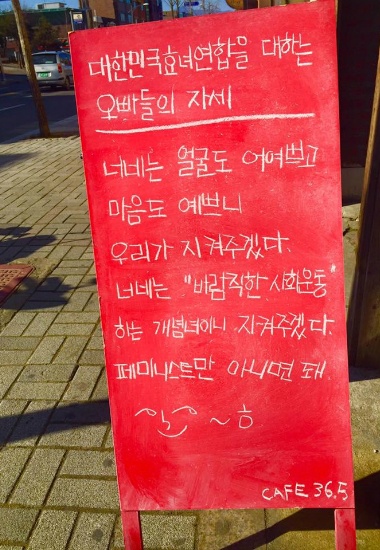 대한민국효녀연합을 대하는
오빠들의 자세
너네는 얼굴도 어여쁘고
마음도 예쁘니
우리가 지켜주겠다.
너네는 "바람직한 사회운동"
하는 개념녀이니 지켜주겠다.
페미니스트만 아니면 돼.
~ㅎ
CAFE 36.5